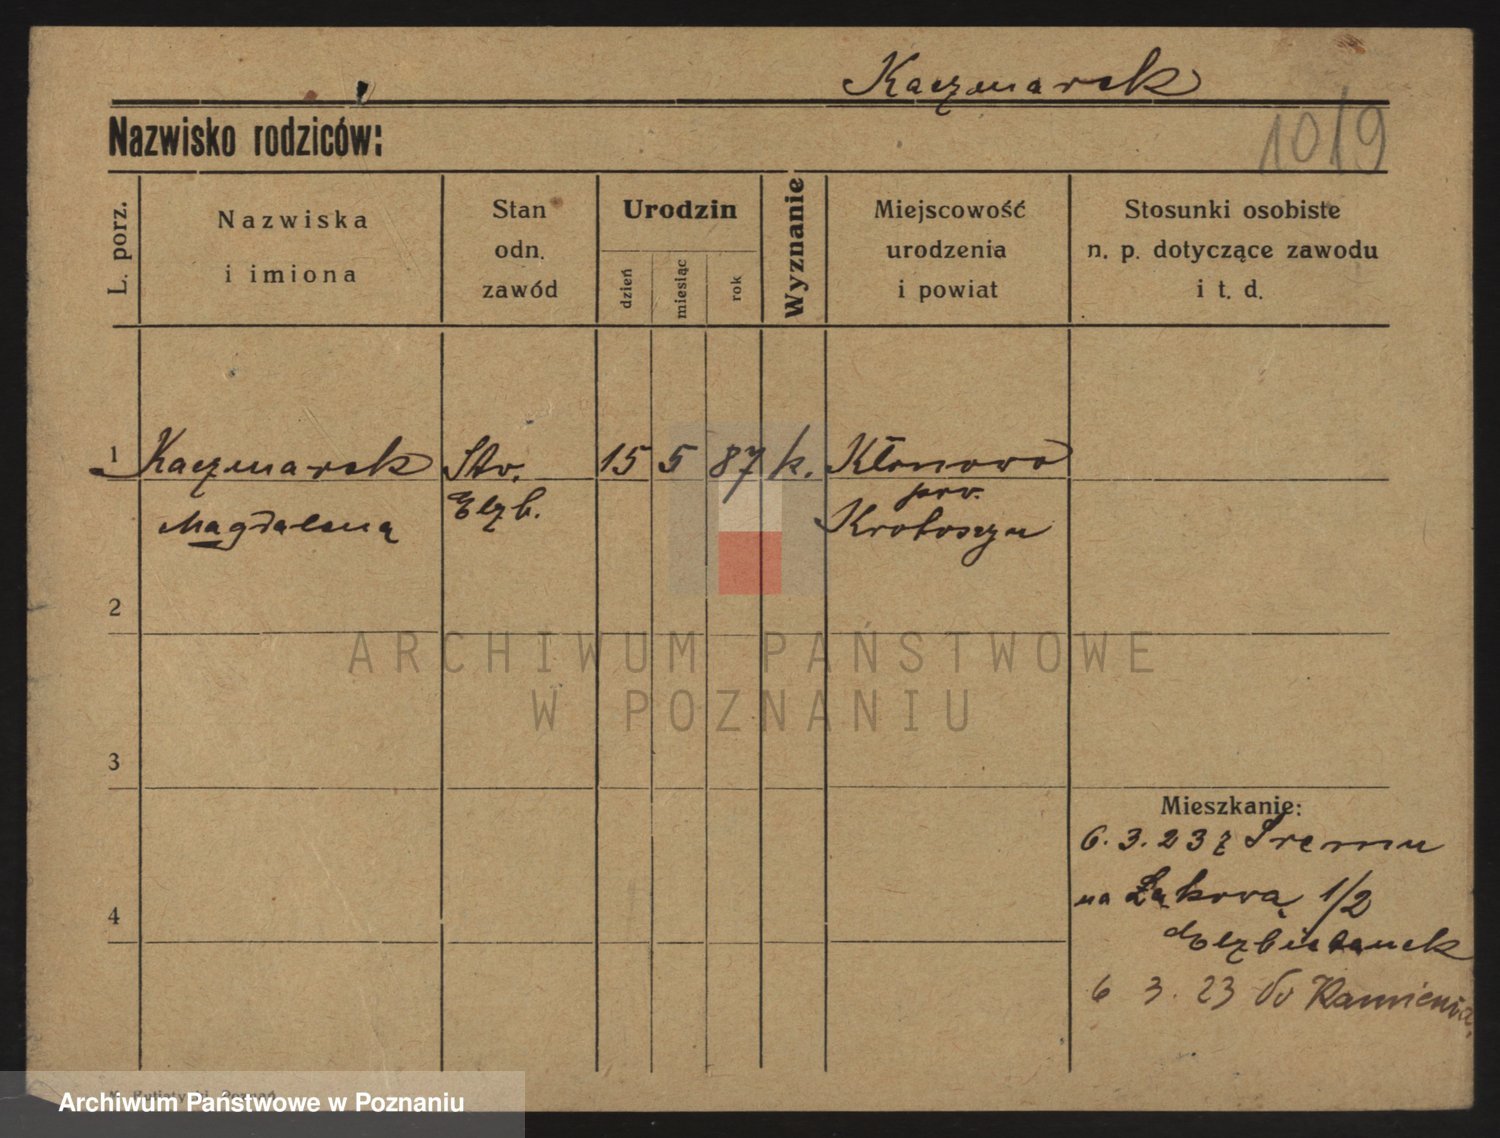 Kaczmarek
Nazwisko rodziców:
1019
L. porz.
Nazwiska
i imiona
Stan
odn.
zawód
Urodzin
dzień
miesiąc
rok
Wyznanie
Miejscowość
urodzenia
i powiat
Stosunki osobiste
n. p. dotyczące zawodu
i t. d.
1 Kaczmarek Stw. 15 5 87 k. Kłonowo
Magdalena Elzb. pow.
Krotoszyn
2
ARCHIWUM PAŃSTWOWE
W POZNANIU
3
Mieszkanie:
6. 3. 23 z Śremu
4 na Łąkową 1/2
Elzbietanek
6 3. 23 do Kamienia
Archiwum Państwowe w Poznaniu